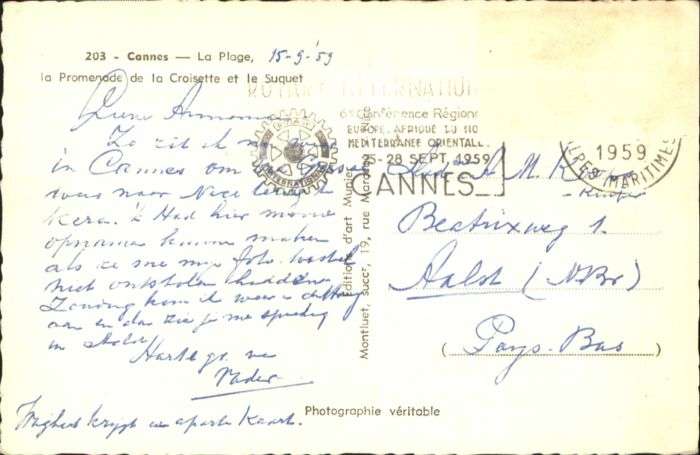 203 - Cannes — La Plage, 15-9-'59
la Promenade de la Croisette et le Suquet
Lieve Annemarie
Zo zit ik
in Cannes om
was naar Nice
keer. 'k Had hier mooie
opnamen kunnen maken
als ze me mijn foto toestel
niet ontstolen hadden
Zondag kom ik weer
aan en dan zie je me spoedig
in Aalst
Hartel gr. van
Vader
krijgt een aparte kaart.
ROTARY INTERNATIONAL
6e Conférence Région
EUROPE, AFRIQUE DU NO
MEDITERRANEE ORIENTALE
25-28 SEPT. 1959
CANNES
ROTARY
INTERNATIONAL
1959
ALPES MARITIMES
Edition d'art Munier
Montluet, succr, 19, rue Maréchal Nice
A. M.
Beatrixweg 1.
Aalst (NBr)
(Pays-Bas)
Photographie véritable